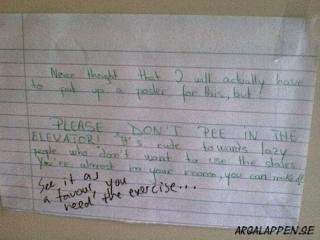 Never thought that I will actually have
to put up a poster for this, but:
PLEASE DON'T PEE IN THE
ELEVATOR! It's rude towards lazy
people who don't want to use the stairs.
You're almost in your rooms, you can make it!
See it as
a favour, you
need the exercise...
ARGALAPPEN.SE